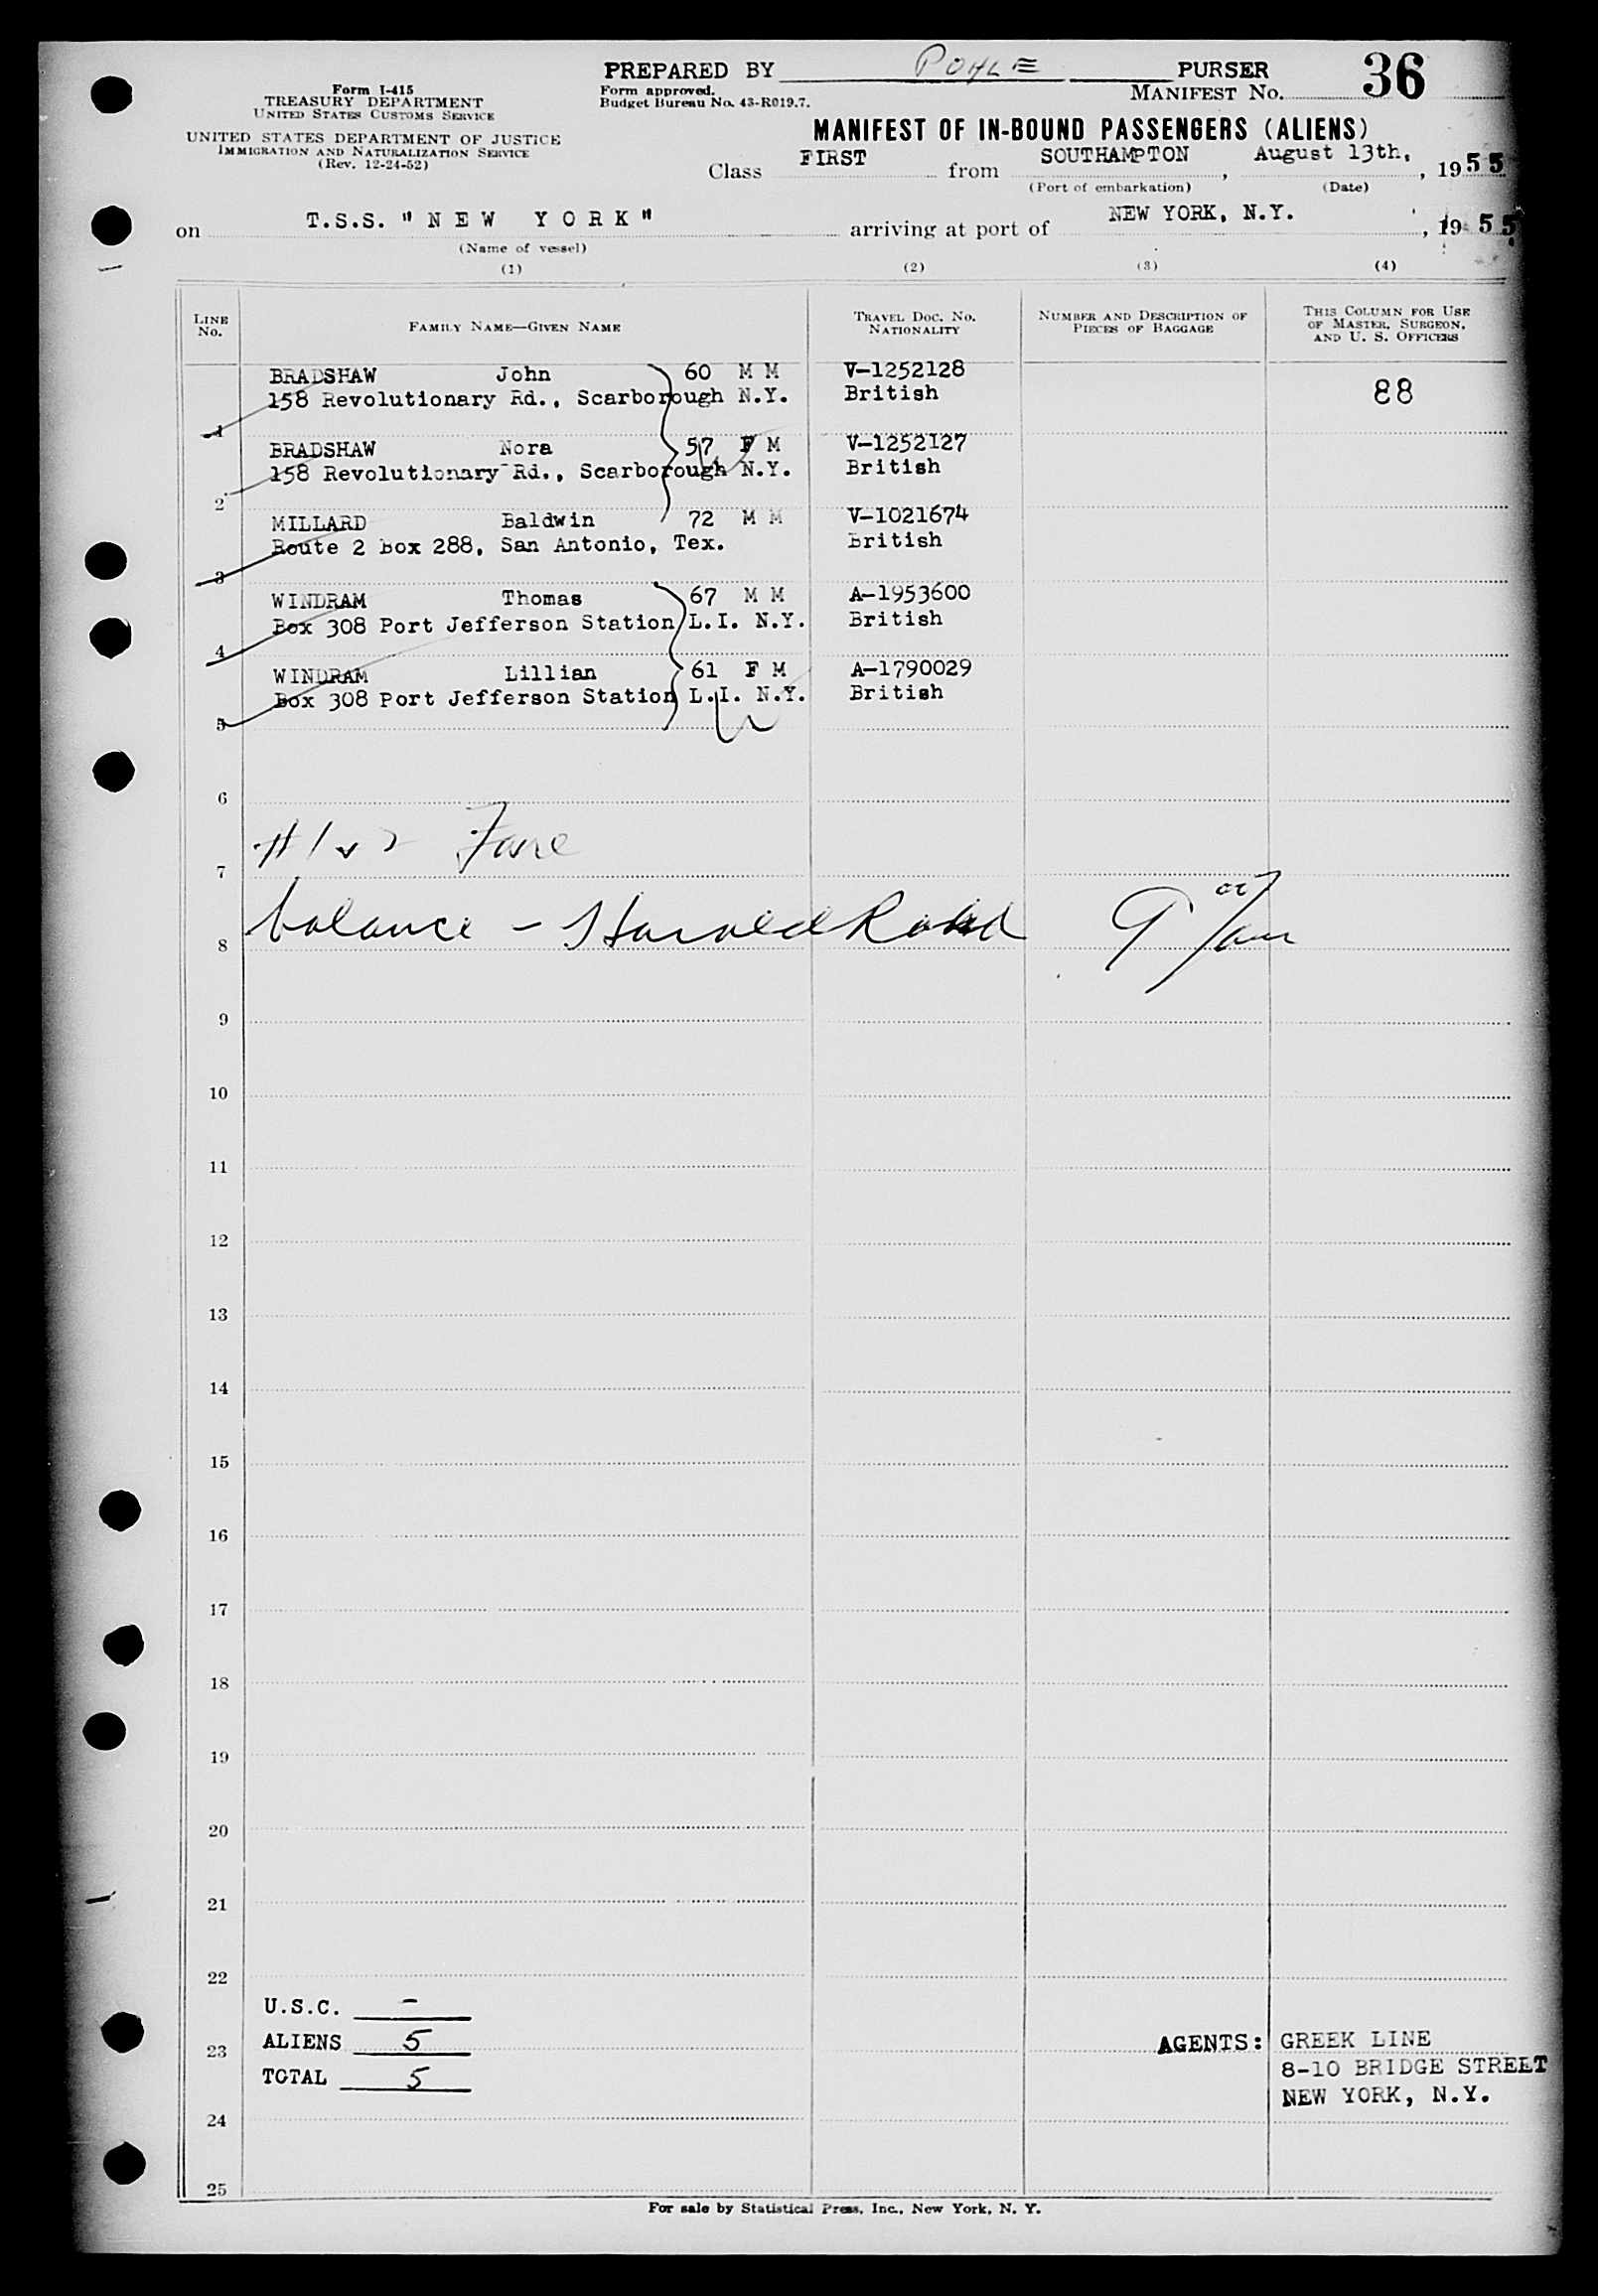 PREPARED BY POHLE PURSER
Form I-415
TREASURY DEPARTMENT
UNITED STATES CUSTOMS SERVICE
UNITED STATES DEPARTMENT OF JUSTICE
IMMIGRATION AND NATURALIZATION SERVICE
(Rev. 12-24-52)
Form approved.
Budget Bureau No. 43-R019.7.
MANIFEST NO. 36
MANIFEST OF IN-BOUND PASSENGERS (ALIENS)
Class FIRST from SOUTHAMPTON, August 13th, , 1955
(Port of embarkation) (Date)
on T.S.S. "NEW YORK" arriving at port of NEW YORK, N.Y. , 1955
(Name of vessel)
(1) (2) (3) (4)
LINE NO. FAMILY NAME—GIVEN NAME TRAVEL DOC. NO. NATIONALITY NUMBER AND DESCRIPTION OF PIECES OF BAGGAGE THIS COLUMN FOR USE OF MASTER, SURGEON, AND U. S. OFFICERS
BRADSHAW John 60 M M V-1252128
158 Revolutionary Rd., Scarborough N.Y. British 88
1
BRADSHAW Nora 57 F M V-1252127
158 Revolutionary Rd., Scarborough N.Y. British
2
MILLARD Baldwin 72 M M V-1021674
Route 2 box 288, San Antonio, Tex. British
3
WINDRAM Thomas 67 M M A-1953600
Box 308 Port Jefferson Station L.I. N.Y. British
4
WINDRAM Lillian 61 F M A-1790029
Box 308 Port Jefferson Station L.I. N.Y. British
5
6
#1 2
7
8 balance - Harold
9
10
11
12
13
14
15
16
17
18
19
20
21
22
U.S.C. -
23 ALIENS 5 AGENTS: GREEK LINE
TOTAL 5 8-10 BRIDGE STREET
NEW YORK, N.Y.
24
25
For sale by Statistical Press, Inc., New York, N. Y.